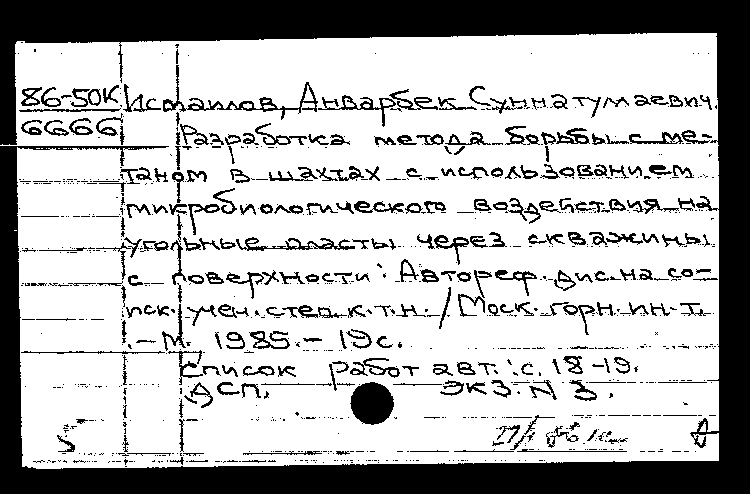 86-50К Исмаилов, Анварбек Суннатумаевич.
6666 Разработка метода борьбы с ме-
таном в шахтах с использованием
микробиологического воздействия на
угольные пласты через скважины
с поверхности: Автореф. дис. на со-
иск. учен. степ. к.т.н. / Моск. горн. ин-т.
.-М. 1985.- 19с.
Список работ авт.: с. 18-19.
ДСП. ЭКЗ. N 3.
5